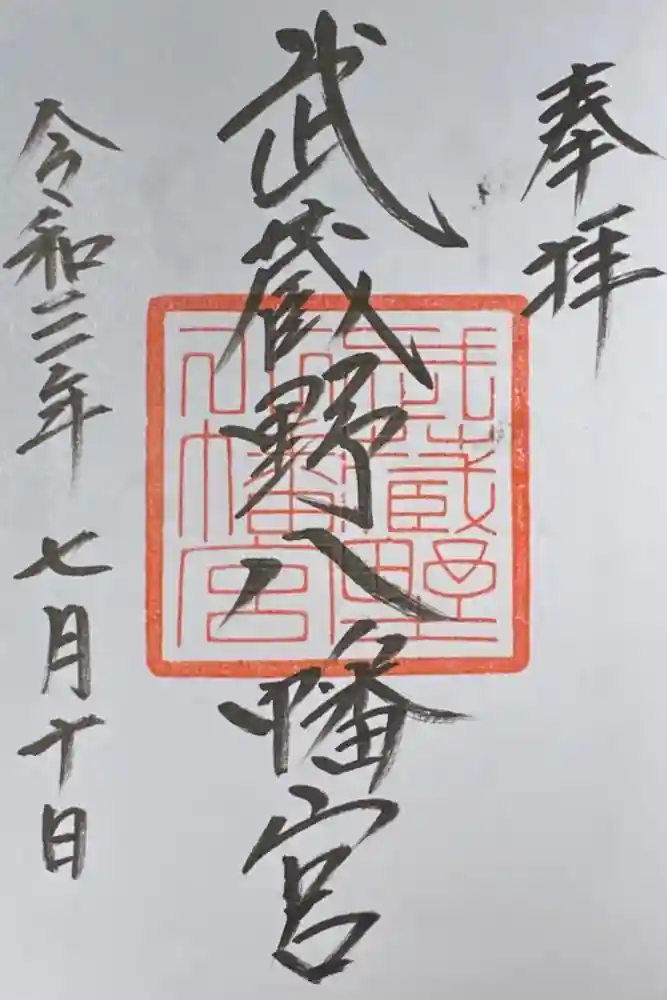 奉拝
武蔵野八幡宮
令和三年 七月十日
武蔵野
八幡宮